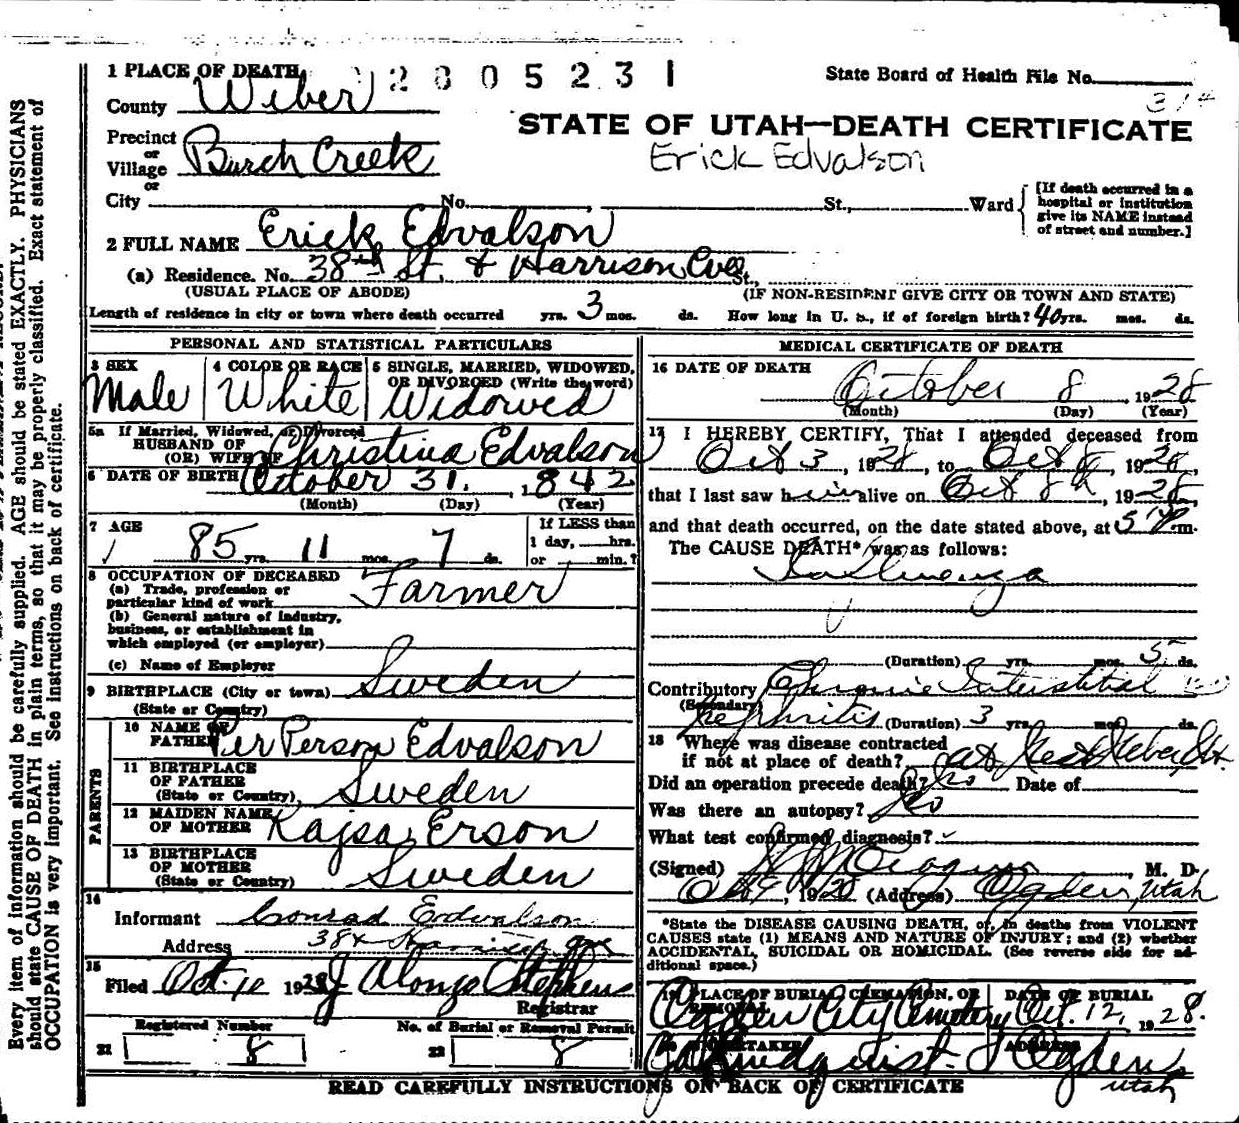 1 PLACE OF DEATH
2805231
State Board of Health File No.
County Weber
314
STATE OF UTAH—DEATH CERTIFICATE
Precinct
or
Village Burch Creek
or
Erick Edvalson
City No. St., Ward
[If death occurred in a
hospital or institution
give its NAME instead
of street and number.]
2 FULL NAME Erick Edvalson
(a) Residence. No. 38th St. & Harrison Ave St.,
(USUAL PLACE OF ABODE) (IF NON-RESIDENT GIVE CITY OR TOWN AND STATE)
Length of residence in city or town where death occurred yrs. 3 mos. ds. How long in U. S., if of foreign birth? 40 yrs. mos. ds.
PERSONAL AND STATISTICAL PARTICULARS
3 SEX
Male
4 COLOR OR RACE
White
5 SINGLE, MARRIED, WIDOWED,
OR DIVORCED (Write the word)
Widowed
5a If Married, Widowed, or Divorced
HUSBAND OF
(OR) WIFE OF Christina Edvalson
6 DATE OF BIRTH October 31, 1842
(Month) (Day) (Year)
7 AGE
85 yrs. 11 mos. 7 ds.
If LESS than
1 day, hrs.
or min.?
8 OCCUPATION OF DECEASED
(a) Trade, profession or
particular kind of work Farmer
(b) General nature of industry,
business, or establishment in
which employed (or employer)
(c) Name of Employer
9 BIRTHPLACE (City or town) Sweden
(State or Country)
PARENTS
10 NAME OF
FATHER Per Person Edvalson
11 BIRTHPLACE
OF FATHER
(State or Country) Sweden
12 MAIDEN NAME
OF MOTHER Kajsa Erson
13 BIRTHPLACE
OF MOTHER
(State or Country) Sweden
14
Informant Conrad Edvalson
Address 38 & Harrison Ave
15
Filed Oct. 10 1928 J Alonzo Stephens
Registrar
Registered Number
21 8
No. of Burial or Removal Permit
22 8
MEDICAL CERTIFICATE OF DEATH
16 DATE OF DEATH
October 8, 1928
(Month) (Day) (Year)
17 I HEREBY CERTIFY, That I attended deceased from
Oct 3, 1928, to Oct 8, 1928,
that I last saw him alive on Oct 8th, 1928,
and that death occurred, on the date stated above, at 5 P.m.
The CAUSE DEATH* was as follows:
Influenza
(Duration) yrs. mos. 5 ds.
Contributory Chronic Interstitial
(Secondary)
Nephritis (Duration) 3 yrs. mos. ds.
18 Where was disease contracted
if not at place of death? at West Weber, Ut.
Did an operation precede death? No Date of
Was there an autopsy? No
What test confirmed diagnosis?
(Signed) M. D.
Oct 9, 1928 (Address) Ogden, Utah
*State the DISEASE CAUSING DEATH, or, in deaths from VIOLENT
CAUSES state (1) MEANS AND NATURE OF INJURY; and (2) whether
ACCIDENTAL, SUICIDAL OR HOMICIDAL. (See reverse side for ad-
ditional space.)
19 PLACE OF BURIAL, CREMATION, OR
REMOVAL
Ogden City Cemetery
DATE OF BURIAL
Oct. 12, 1928.
20 UNDERTAKER
Lindquist
ADDRESS
Ogden
Utah
READ CAREFULLY INSTRUCTIONS ON BACK OF CERTIFICATE
Every item of information should be carefully supplied. AGE should be stated EXACTLY. PHYSICIANS
should state CAUSE OF DEATH in plain terms, so that it may be properly classified. Exact statement of
OCCUPATION is very important. See instructions on back of certificate.